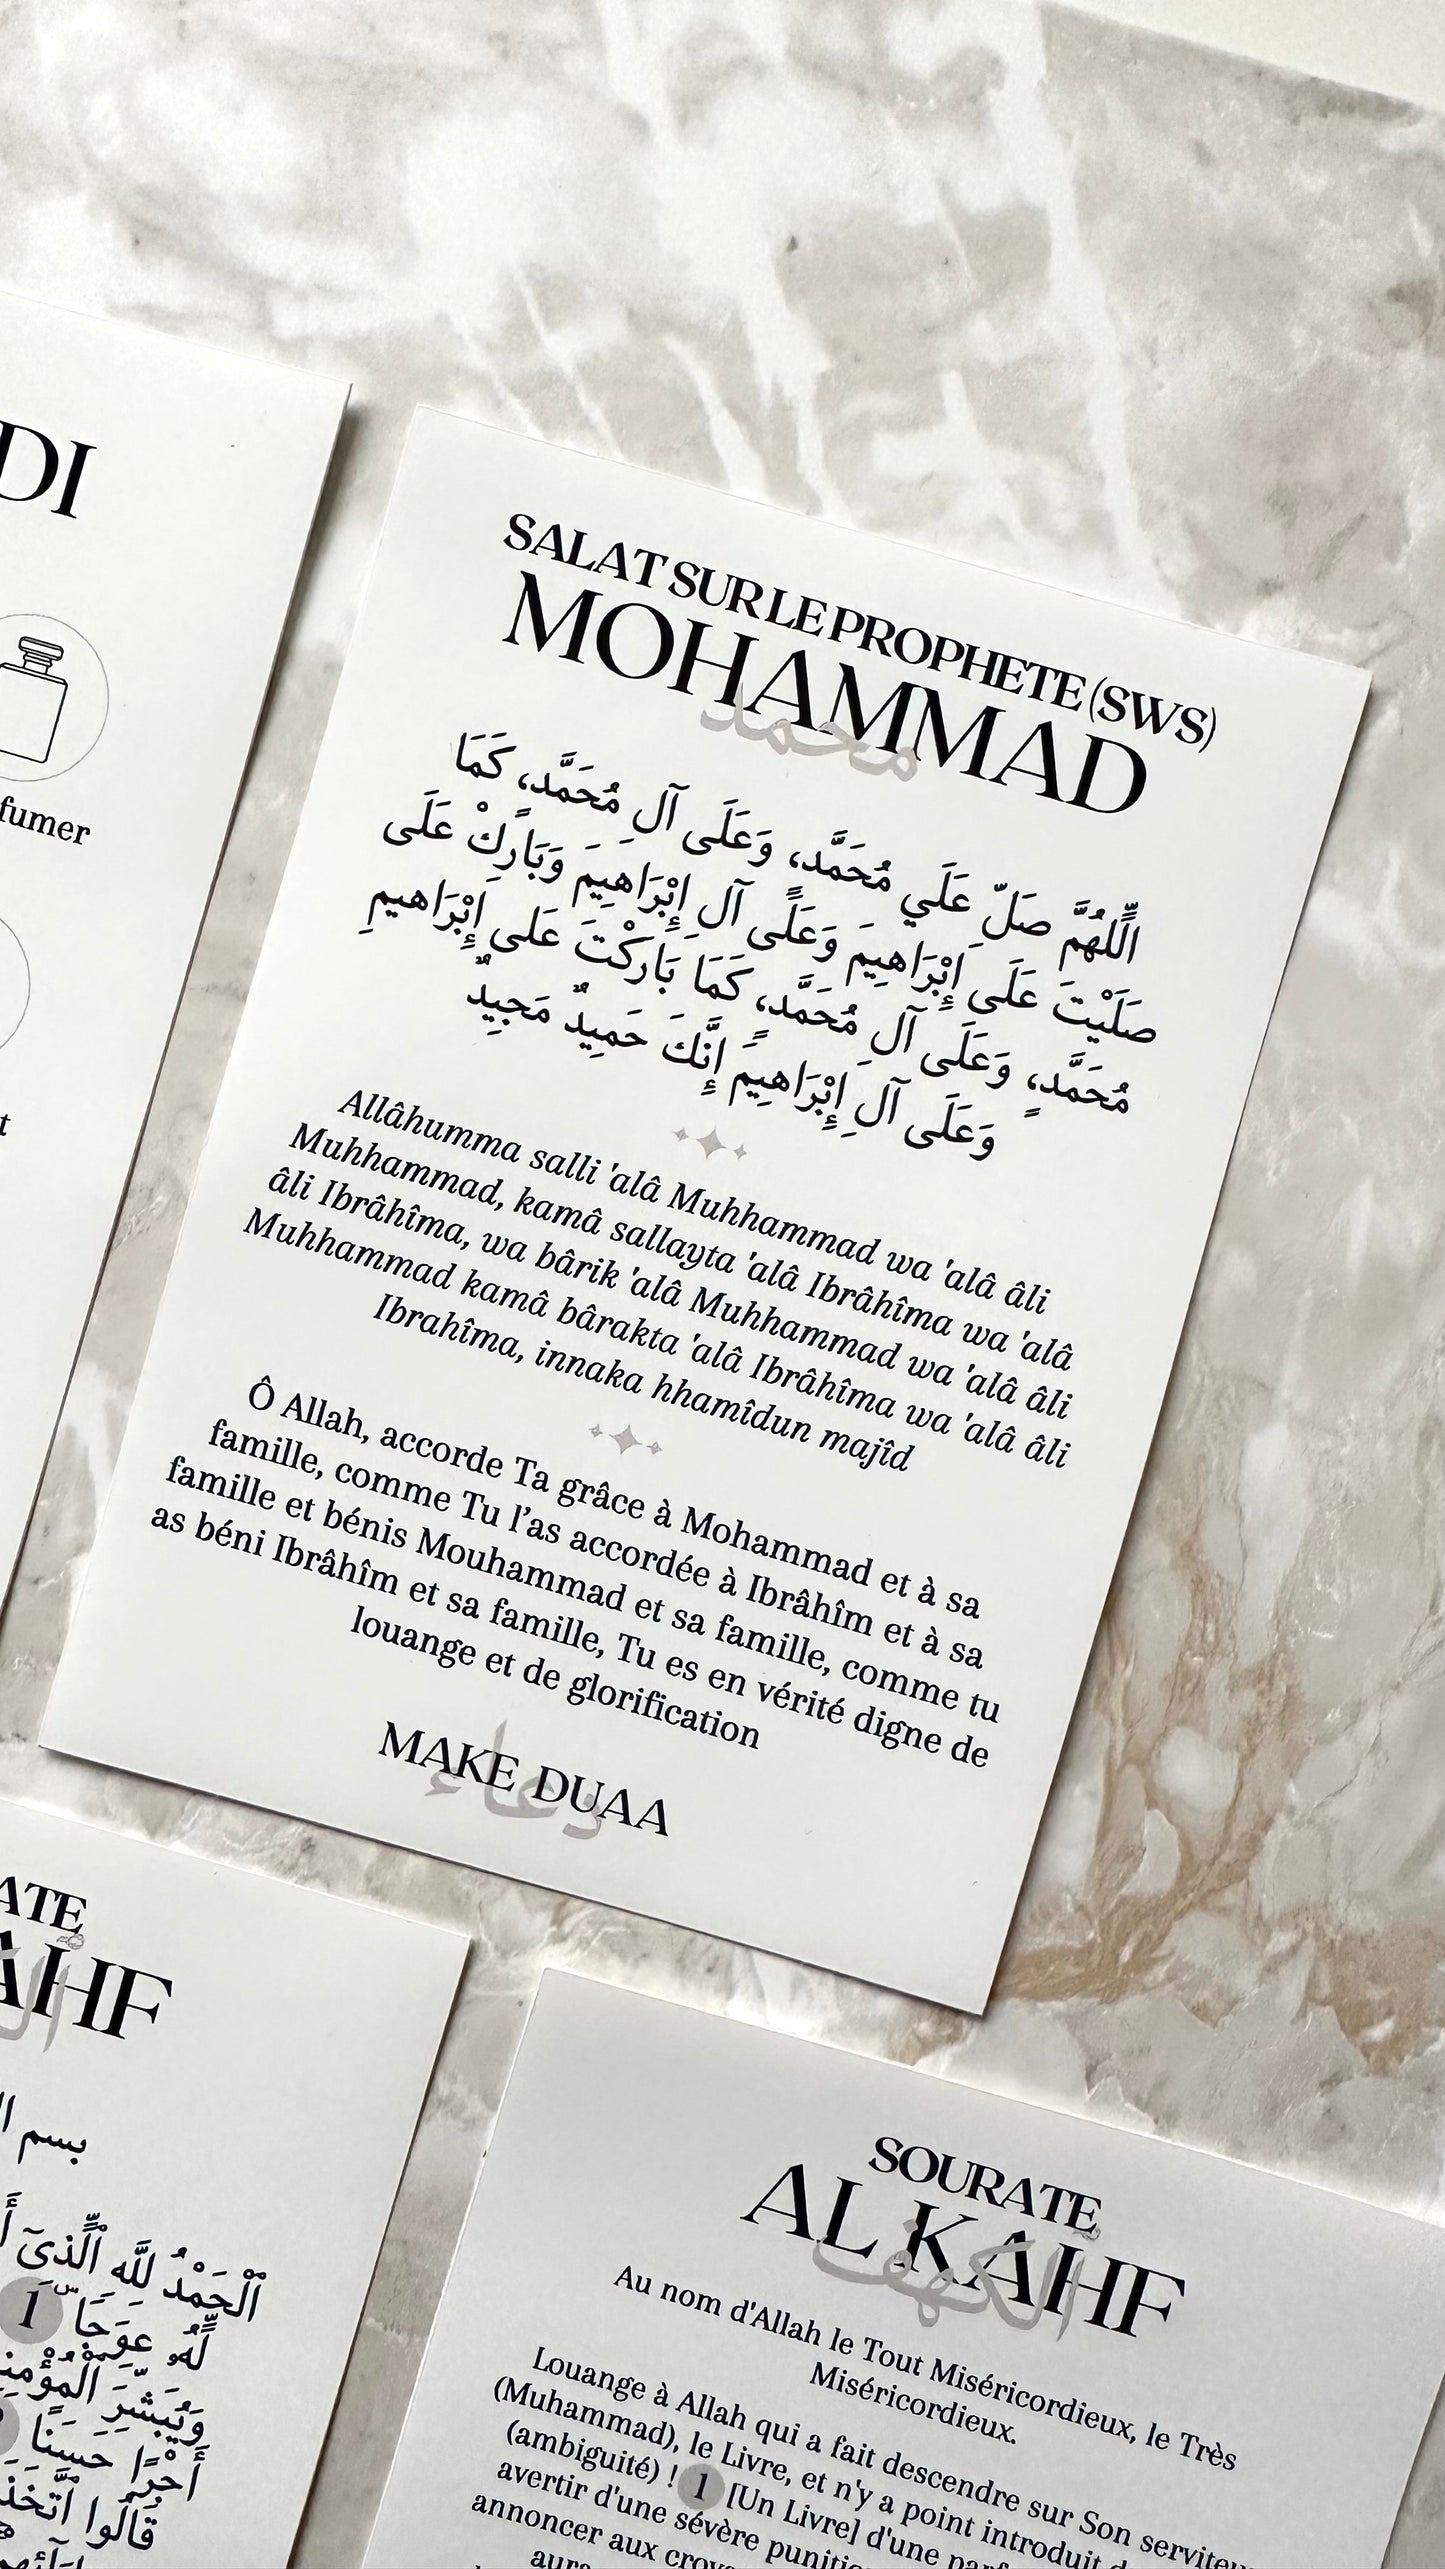 DI
fumer
t
SALAT SUR LE PROPHETE (SWS)
MOHAMMAD
محمد
اللَّهُمَّ صَلِّ عَلَي مُحَمَّد، وَعَلَى آلِ مُحَمَّد، كَمَا
صَلَيْتَ عَلَى إِبْرَاهِيمَ وَعَلَى آلِ إِبْرَاهِيمَ وَبَارِكْ عَلَى
مُحَمَّدٍ، وَعَلَى آلِ مُحَمَّدٍ، كَمَا بَارَكْتَ عَلى إِبْرَاهيمِ
وَعَلَى آلِ إِبْرَاهِيمَ إِنَّكَ حَمِيدٌ مَجِيدٌ
Allâhumma salli 'alâ Muhhammad wa 'alâ âli
Muhhammad, kamâ sallayta 'alâ Ibrâhîma wa 'alâ
âli Ibrâhîma, wa bârik 'alâ Muhhammad wa 'alâ âli
Muhhammad kamâ bârakta 'alâ Ibrâhîma wa 'alâ âli
Ibrahîma, innaka hhamîdun majîd
Ô Allah, accorde Ta grâce à Mohammad et à sa
famille, comme Tu l’as accordée à Ibrâhîm et à sa
famille et bénis Mouhammad et sa famille, comme tu
as béni Ibrâhîm et sa famille, Tu es en vérité digne de
louange et de glorification
MAKE DUAA
دعاء
ATE
ÂHF
بسم
الْحَمْدُ لِلَّهِ الَّذِىٓ
لَّهُۥ عِوَجَاۜ 1
وَيُبَشِّرَ
أَجْرًا حَسَنًا
قَالُوا اتَّخَذَ
SOURATE
AL KÂHF
الكهف
Au nom d'Allah le Tout Miséricordieux, le Très
Miséricordieux.
Louange à Allah qui a fait descendre sur Son serviteur
(Muhammad), le Livre, et n'y a point introduit
(ambiguité) ! 1 [Un Livre] d'une
avertir d'une sévère
annoncer aux